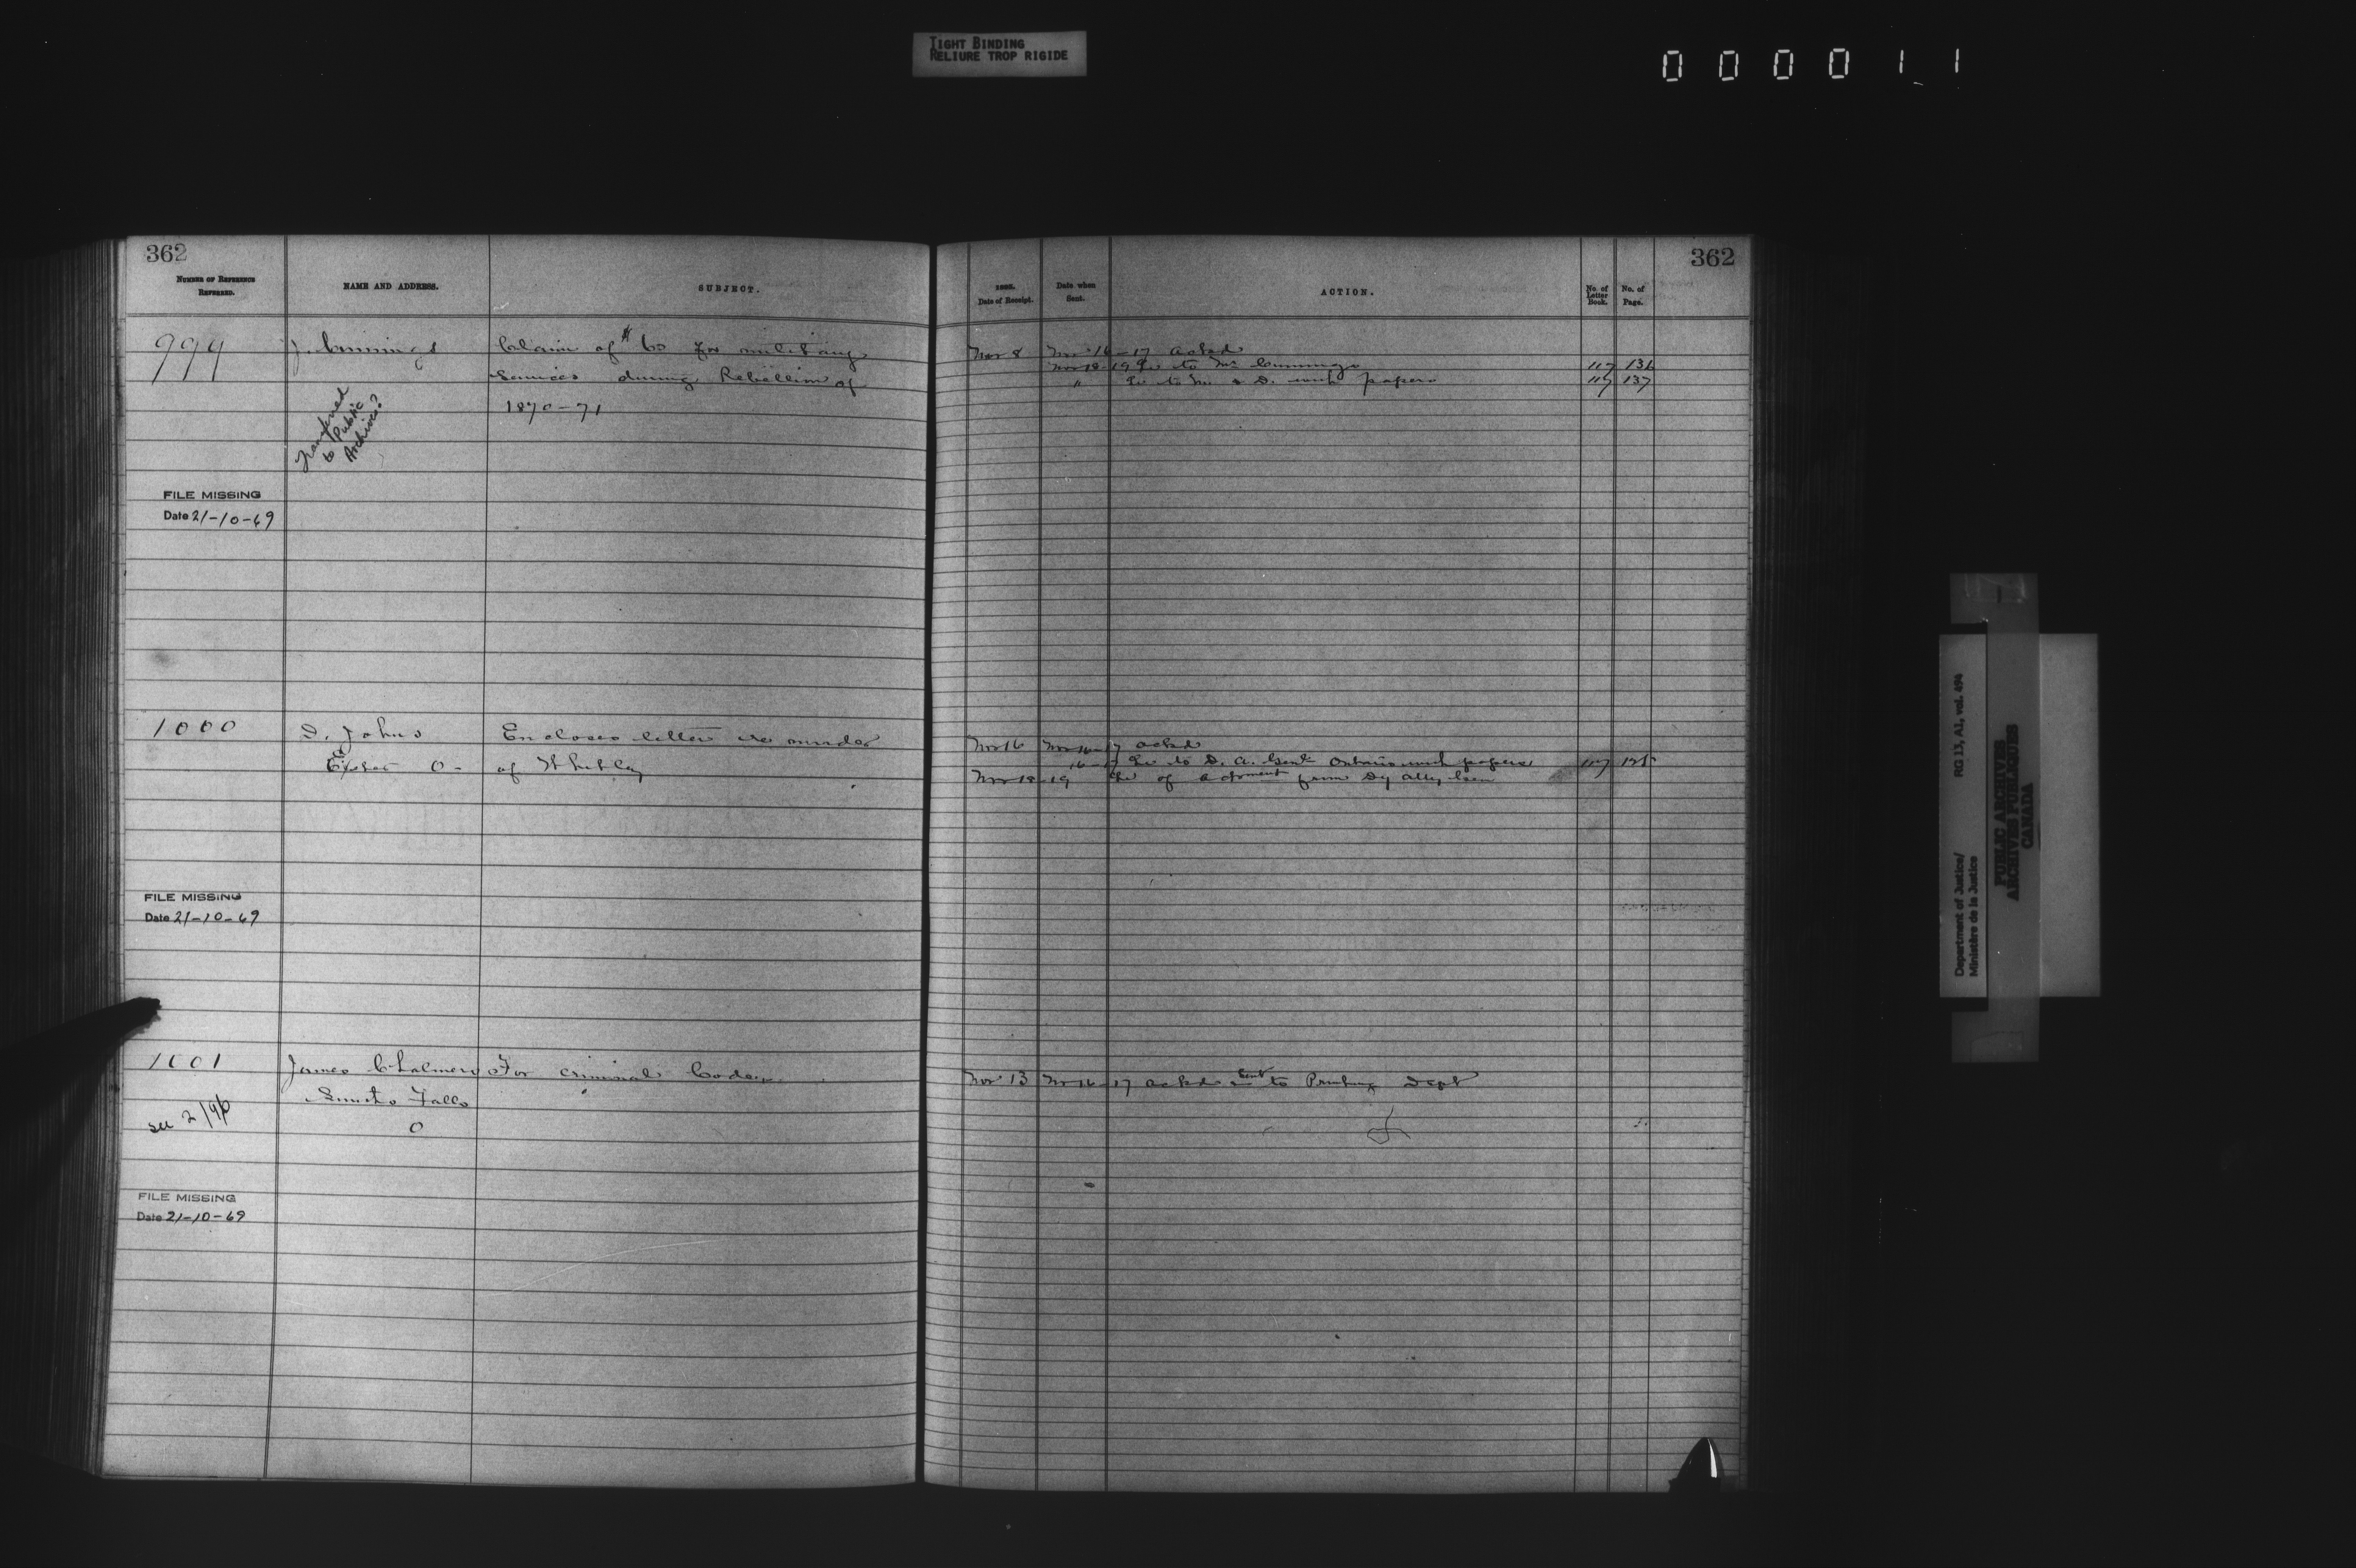 TIGHT BINDING
RELIURE TROP RIGIDE
0 0 0 0 1 1
362
NUMBER OF REFERENCE
REFERRED.
NAME AND ADDRESS.
SUBJECT.
999
J. Cummings
Claim of $60 for military
Services during Rebellion of
1870-71
Transferred
to Public
Archives?
FILE MISSING
Date 21-10-69
1000
D. Johns
Exeter O-
Encloses letter re murder
of Whitley
FILE MISSING
Date 21-10-69
1001
James Chalmers
Smiths Falls
O
For criminal Code
see 2/96
FILE MISSING
Date 21-10-69
362
1895.
Date of Receipt.
Date when
Sent.
ACTION.
No. of
Letter
Book.
No. of
Page.
Nov 8 Nov 16-17 ackd
Nov 18-19 Lr to Mr Cummings 117 136
" Lr to M & D. with papers 117 137
Nov 16 Nov 16-17 ackd
16-17 Lr to D. A. Genl Ontario with papers 117
Nov 18-19 Lr of from Dy Atty Gen
Nov 13 Nov 16-17 ackd sent to Printing Dept
Department of Justice/
Ministère de la Justice
RG 13, A1, vol. 494
PUBLIC ARCHIVES
ARCHIVES PUBLIQUES
CANADA